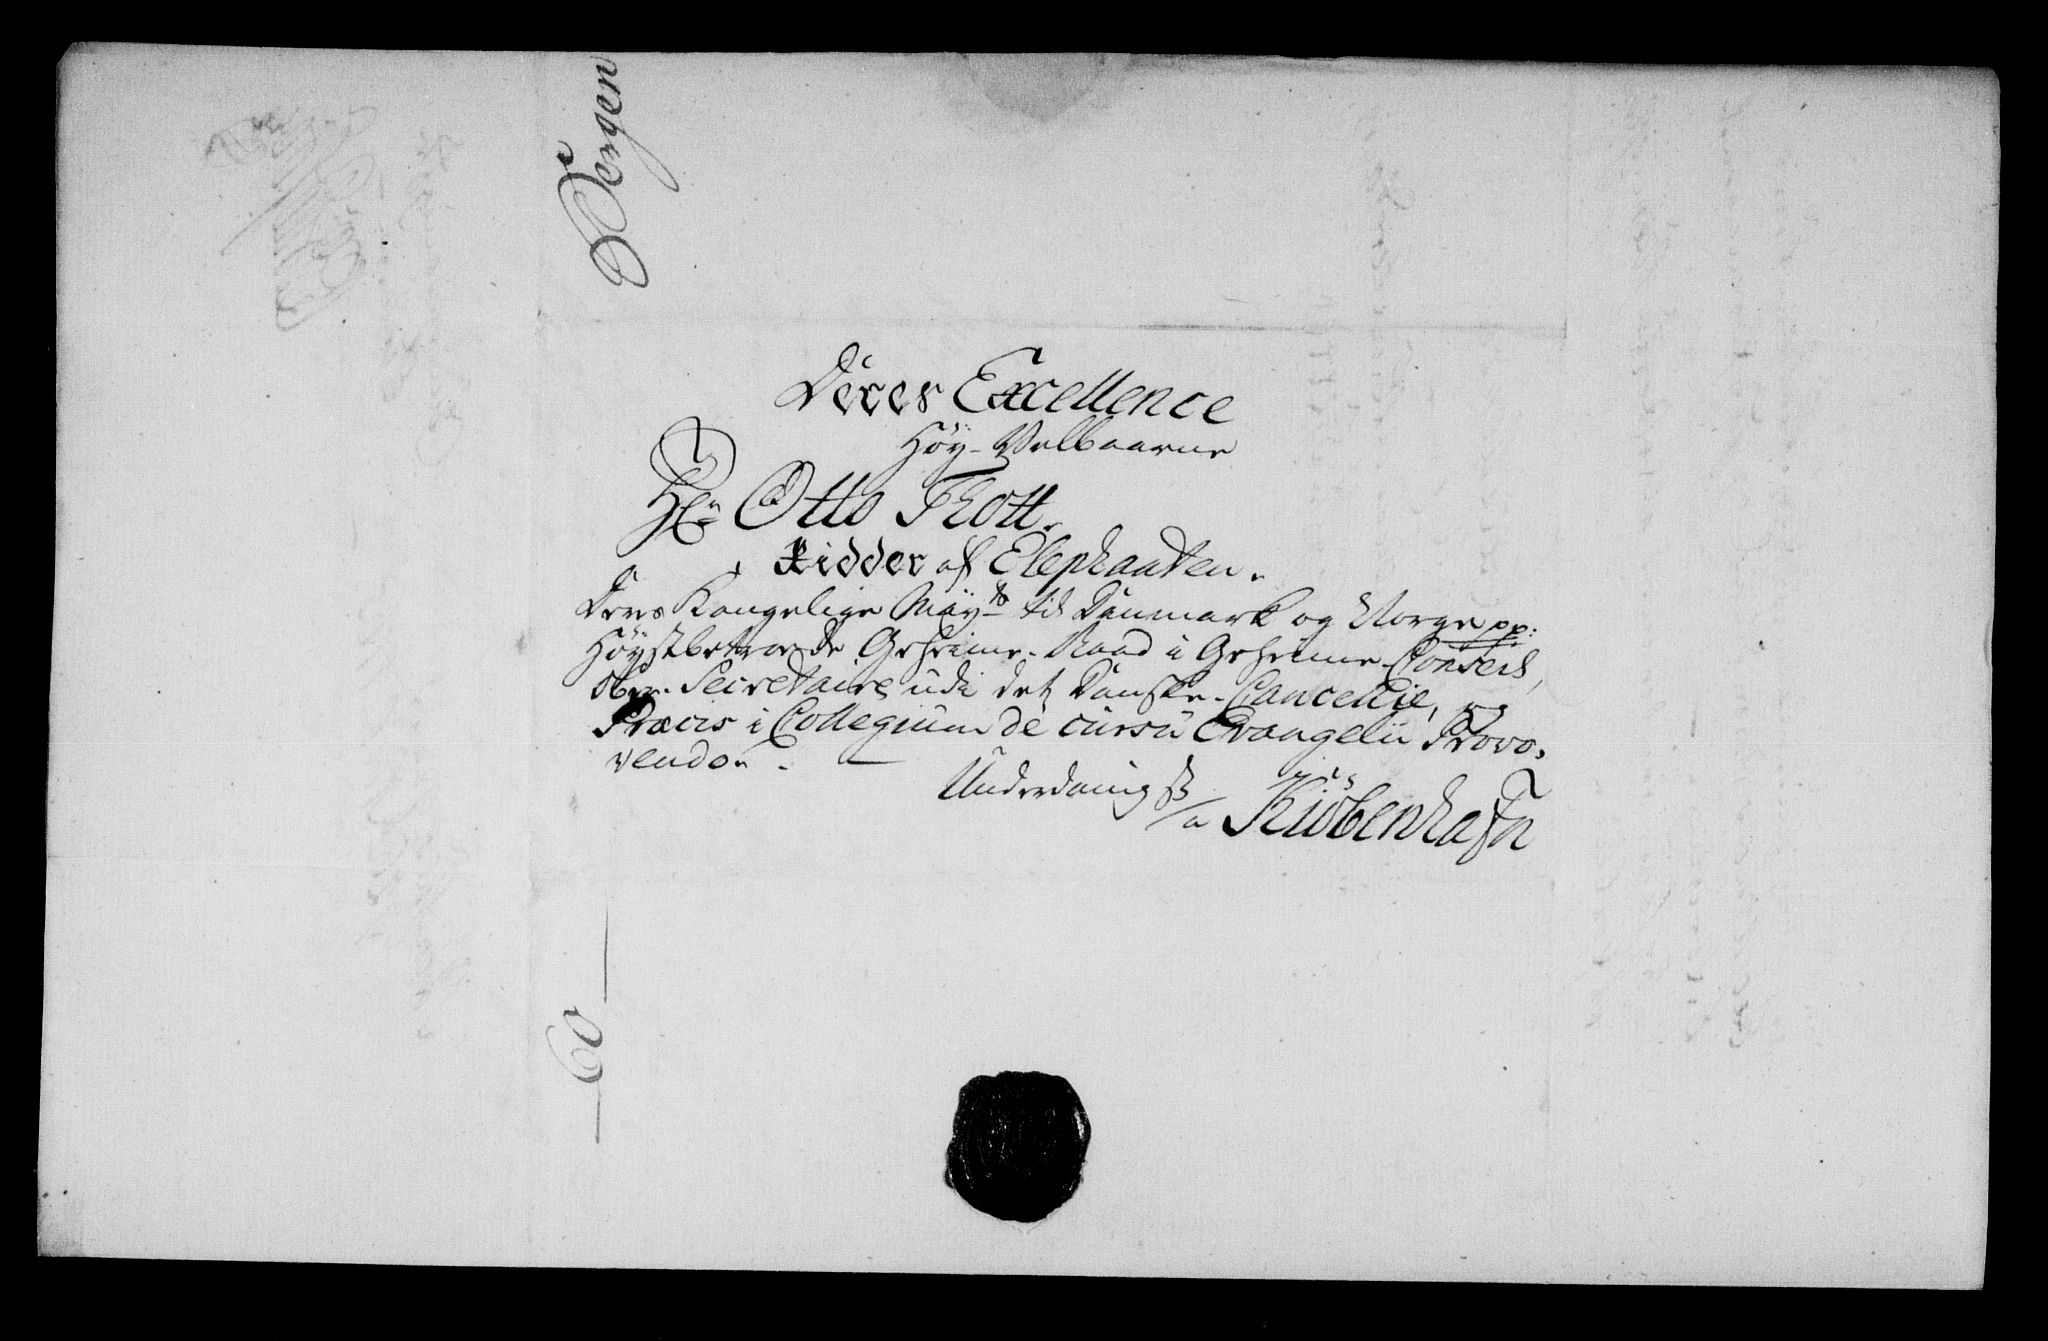 Bergen
Deres Excellence
Høy-Velbaarne
Hr Otto Thott.
Ridder af Elephanten.
Deres Kongelige Mayts til Danmark og Norge pp:
Høystbetroede Geheime-Raad i Geheime-Conseil,
Ober-Secretaire udi det Danske-Cancellie, og
Præcis i Collegium de cursu Evangelii Promo-
vendo.
Underdanigst
a Kiøbenhafn
60